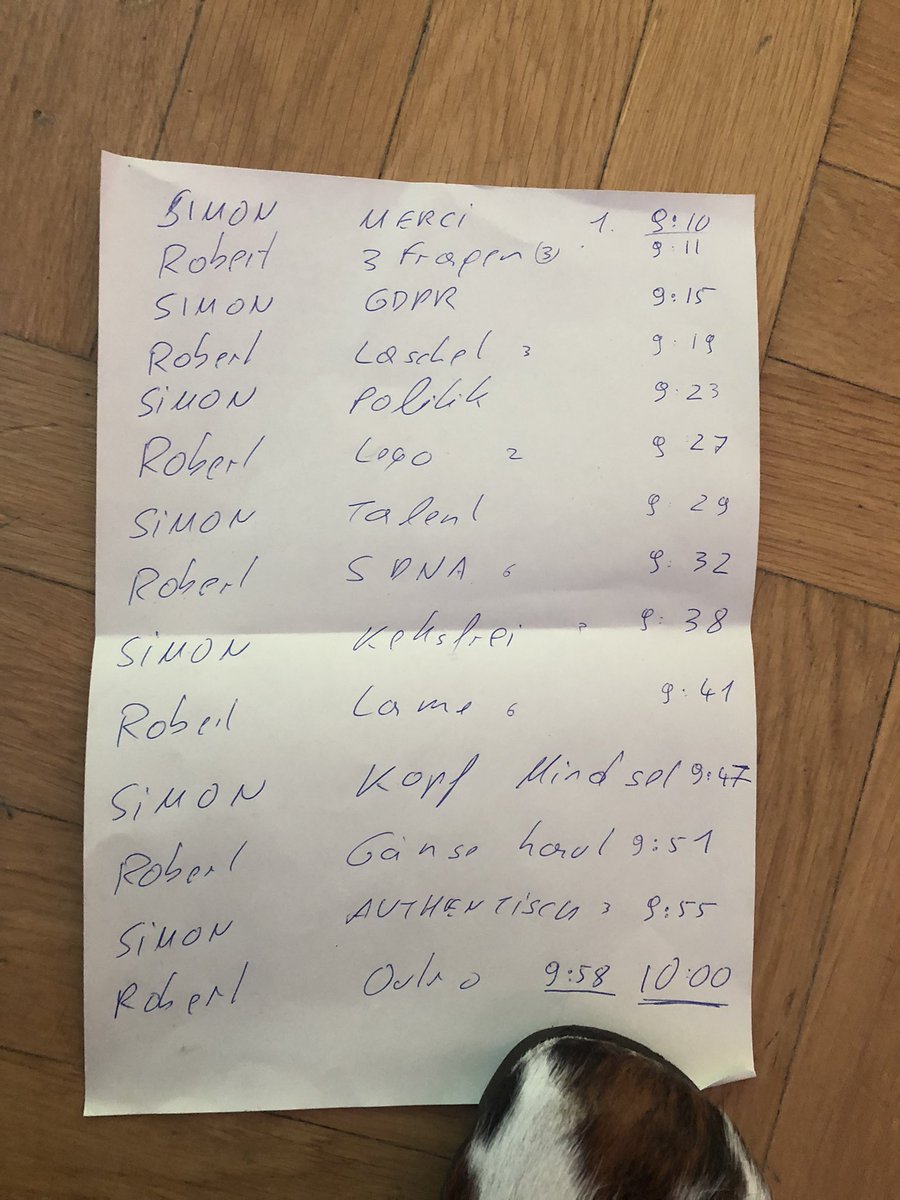 SIMON MERCI 1. 9:10
Robert 3 Fragen (3) 9:11
SIMON GDPR 9:15
Robert Laschet 3 9:19
SiMON Politik 9:23
Robert Lego 2 9:27
SiMON Talent 9:29
Robert SDNA 6 9:32
SiMON Keksfrei 9:38
Robert Lame 6 9:41
SiMON Kopf Mindset 9:47
Robert Gänse haut 9:51
SiMON AUTHENTiSCH 3 9:55
Robert Outro 9:58 10:00